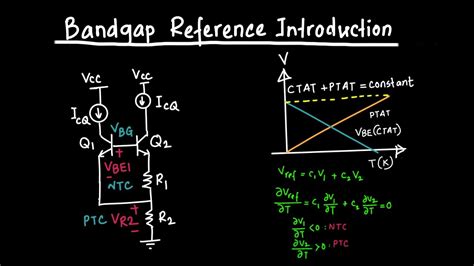 Bandgap Reference Introduction
Vcc
Vcc
ICQ
ICQ
Q1
VBG
Q2
+
VBE1
-
NTC
R1
PTC
+
VR2
-
R2
V
CTAT + PTAT = constant
PTAT
VBE(CTAT)
T(K)
Vref = C1V1 + C2V2
∂Vref/∂T = C1 ∂V1/∂T + C2 ∂V2/∂T = 0
∂V1/∂T < 0 : NTC
∂V2/∂T > 0 : PTC